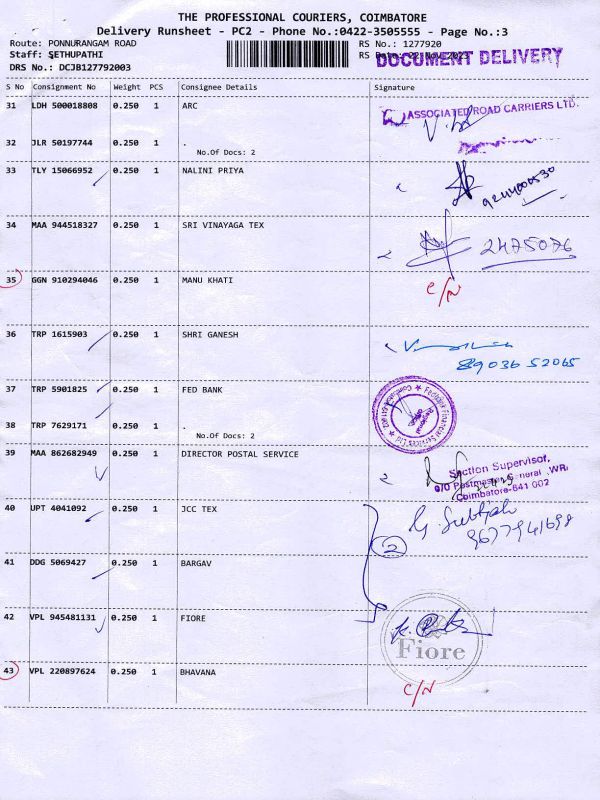 THE PROFESSIONAL COURIERS, COIMBATORE
Delivery Runsheet - PC2 - Phone No.:0422-3505555 - Page No.:3
Route: PONNURANGAM ROAD
RS No.: 1277920
Staff: SETHUPATHI
RS Date: 22 Nov 2021
DOCUMENT DELIVERY
DRS No.: DCJB127792003
S No Consignment No Weight PCS Consignee Details Signature
31 LDH 500018808 0.250 1 ARC
ASSOCIATED ROAD CARRIERS LTD.
32 JLR 50197744 0.250 1 .
No.Of Docs: 2
33 TLY 15066952 0.250 1 NALINI PRIYA
34 MAA 944518327 0.250 1 SRI VINAYAGA TEX
2475076
35 GGN 910294046 0.250 1 MANU KHATI
C/N
36 TRP 1615903 0.250 1 SHRI GANESH
89036 52065
37 TRP 5901825 0.250 1 FED BANK
38 TRP 7629171 0.250 1 .
No.Of Docs: 2
39 MAA 862682949 0.250 1 DIRECTOR POSTAL SERVICE
Section Supervisor,
O/o Postmaster General, WR,
Coimbatore-641 002
40 UPT 4041092 0.250 1 JCC TEX
9677941698
2
41 DDG 5069427 0.250 1 BARGAV
42 VPL 945481131 0.250 1 FIORE
Fiore
43 VPL 220897624 0.250 1 BHAVANA
C/N